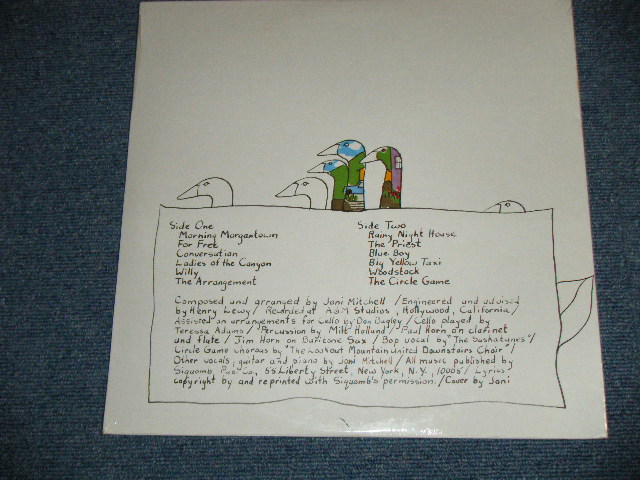 Side One
Morning Morgantown
For Free
Conversation
Ladies of the Canyon
Willy
The Arrangement
Side Two
Rainy Night House
The Priest
Blue Boy
Big Yellow Taxi
Woodstock
The Circle Game
Composed and arranged by Joni Mitchell / Engineered and advised
by Henry Lewy / Recorded at A&M Studios, Hollywood, California /
Assisted on arrangements for Cello by Don Bagley / Cello played by
Teressa Adams / Percussion by Milt Holland / Paul Horn on clarinet
and flute / Jim Horn on Baritone Sax / Bop vocal by "The Saskatunes" /
Circle Game chorus by "The Lookout Mountain United Downstairs Choir" /
Other vocals, guitar and piano by Joni Mitchell / All music published by
Siquomb, Pub. Co., 55 Liberty Street, New York, N.Y., 10005 / Lyrics
copyright by and reprinted with Siquomb's permission. / Cover by Joni